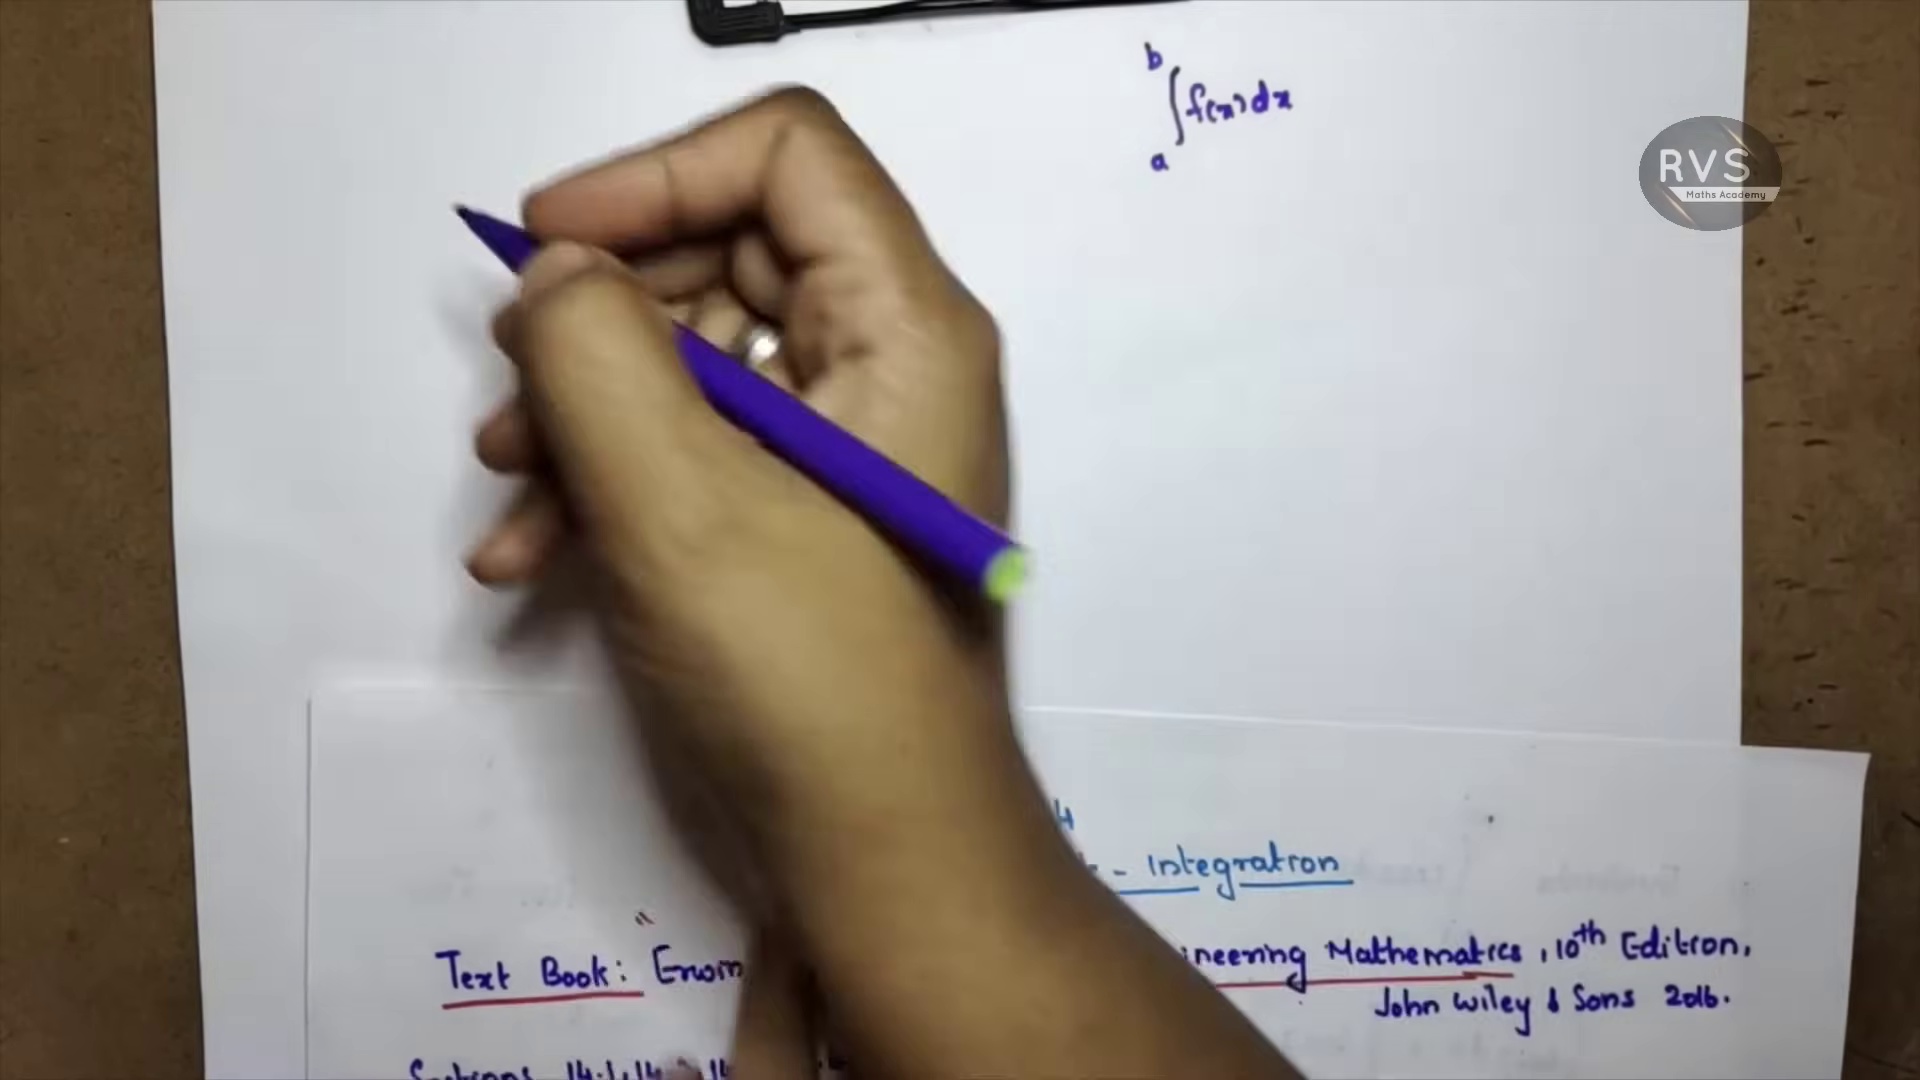 b
∫f(x)dx
a
RVS
Maths Academy
4
- Integration
Text Book: " Erwin
ineering Mathematics, 10th Edition,
John Wiley & Sons 2016.
Sections 14.1, 14